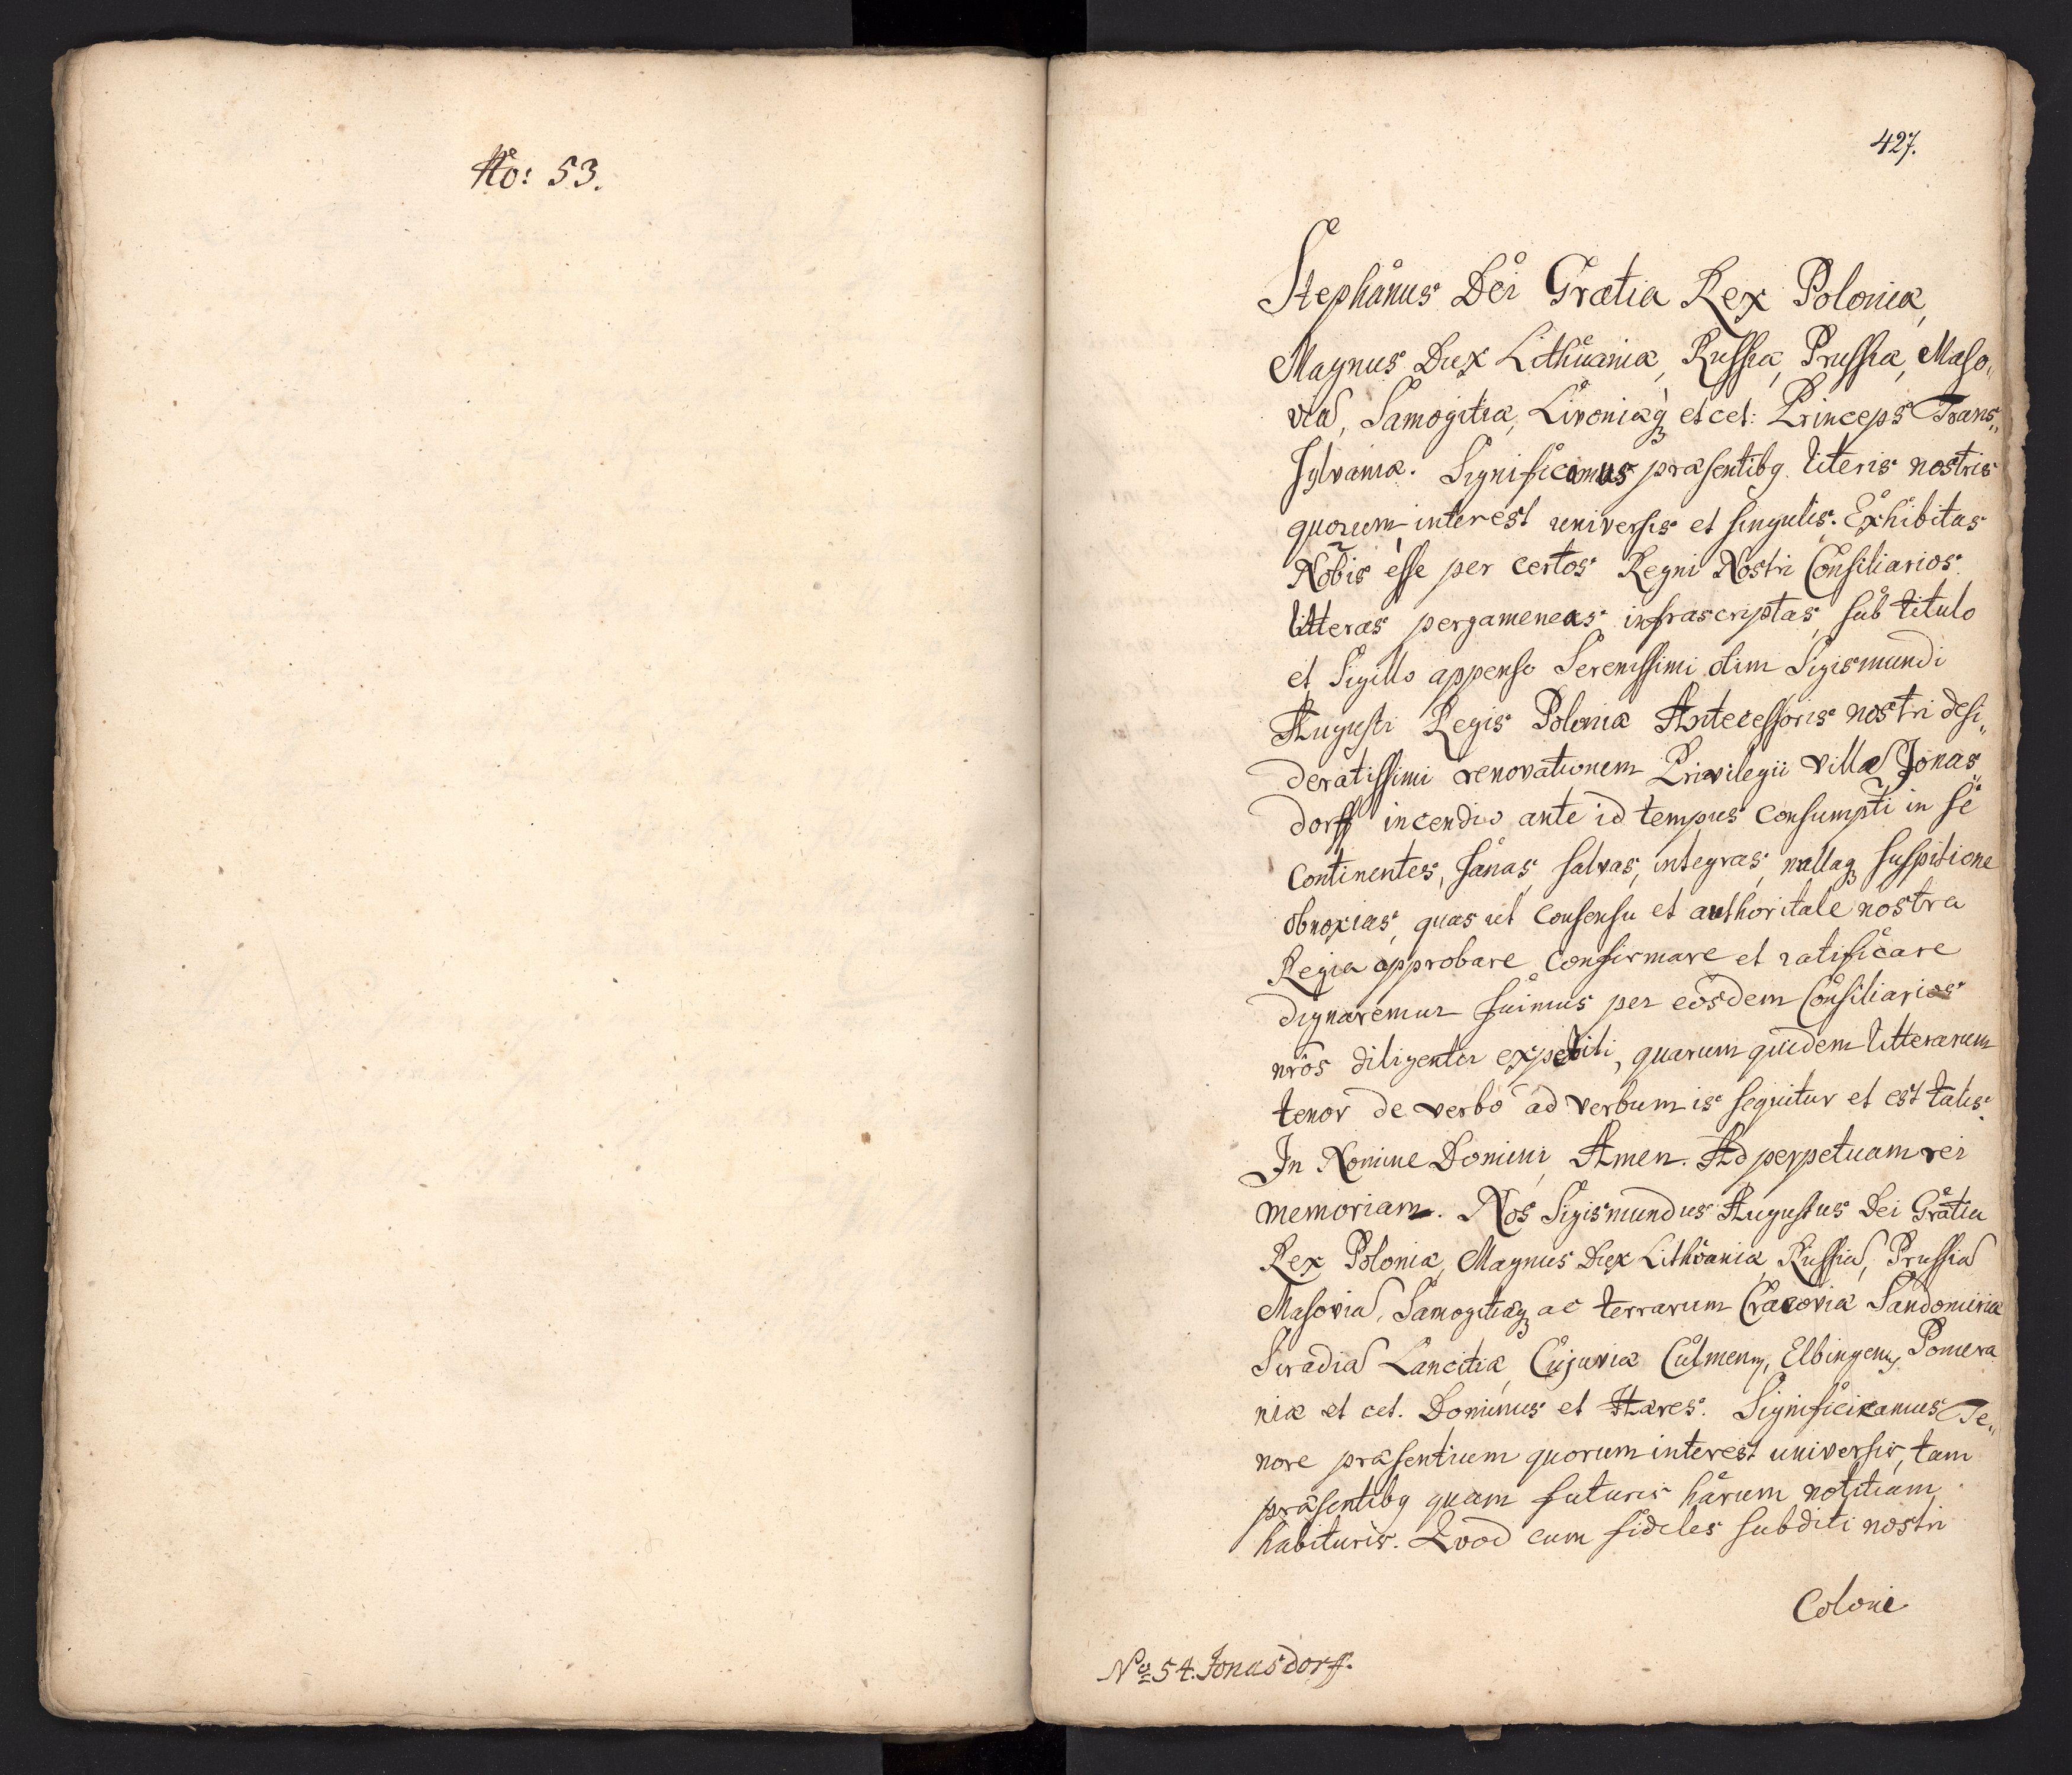 No: 53.
427.
Stephanus Dei Gratia Rex Poloniæ,
Magnus Dux Lithuaniæ, Russiæ, Prussiæ, Maso„
viæ, Samogitiæ, Livoniæq₃ et cet: Princeps Trans„
sylvaniæ. Significamus præsentibq. literis nostris
quorum interest universis et singulis. Exhibitas
Nobis esse per certos Regni Nostri Consiliarios
litteras pergameneas infrascriptas, sub titulo
et Sigillo appenso Serenissimi olim Sigismundi
Augusti Regis Poloniæ Antecessoris nostri desi„
deratissimi renovationem Privilegii villæ Jonas„
dorff incendio ante id tempus consumpti in se
continentes, sanas, salvas, integras, nullaq₃ suspitione
obnoxias, quas ut consensu et authoritate nostra
Regia approbare confirmare et ratificare
dignaremur fuimus per eosdem Consiliarios
nrôs diligenter expetiti, quarum quidem litterarum
tenor de verbo ad verbum is sequitur et est talis.
In Nomine Domini Amen. Ad perpetuam rei
memoriam. Nos Sigismundus Augustus Dei Gratia
Rex Poloniæ, Magnus Dux Lithvaniæ, Russiæ, Prussiæ
Masoviæ, Samogitiæq₃ ac terrarum Cracoviæ Sandomiriæ
Siradiæ Lancitiæ, Cujaviæ Culmenq, Elbingenq, Pomera
niæ et cet. Dominus et Hæres. Significicamus Te„
nore præsentium quorum interest universis, tam
præsentibq quam futuris harum notitiam
habituris. Qvod cum fideles subditi nostri
Coloni
No 54. Jonasdorff.